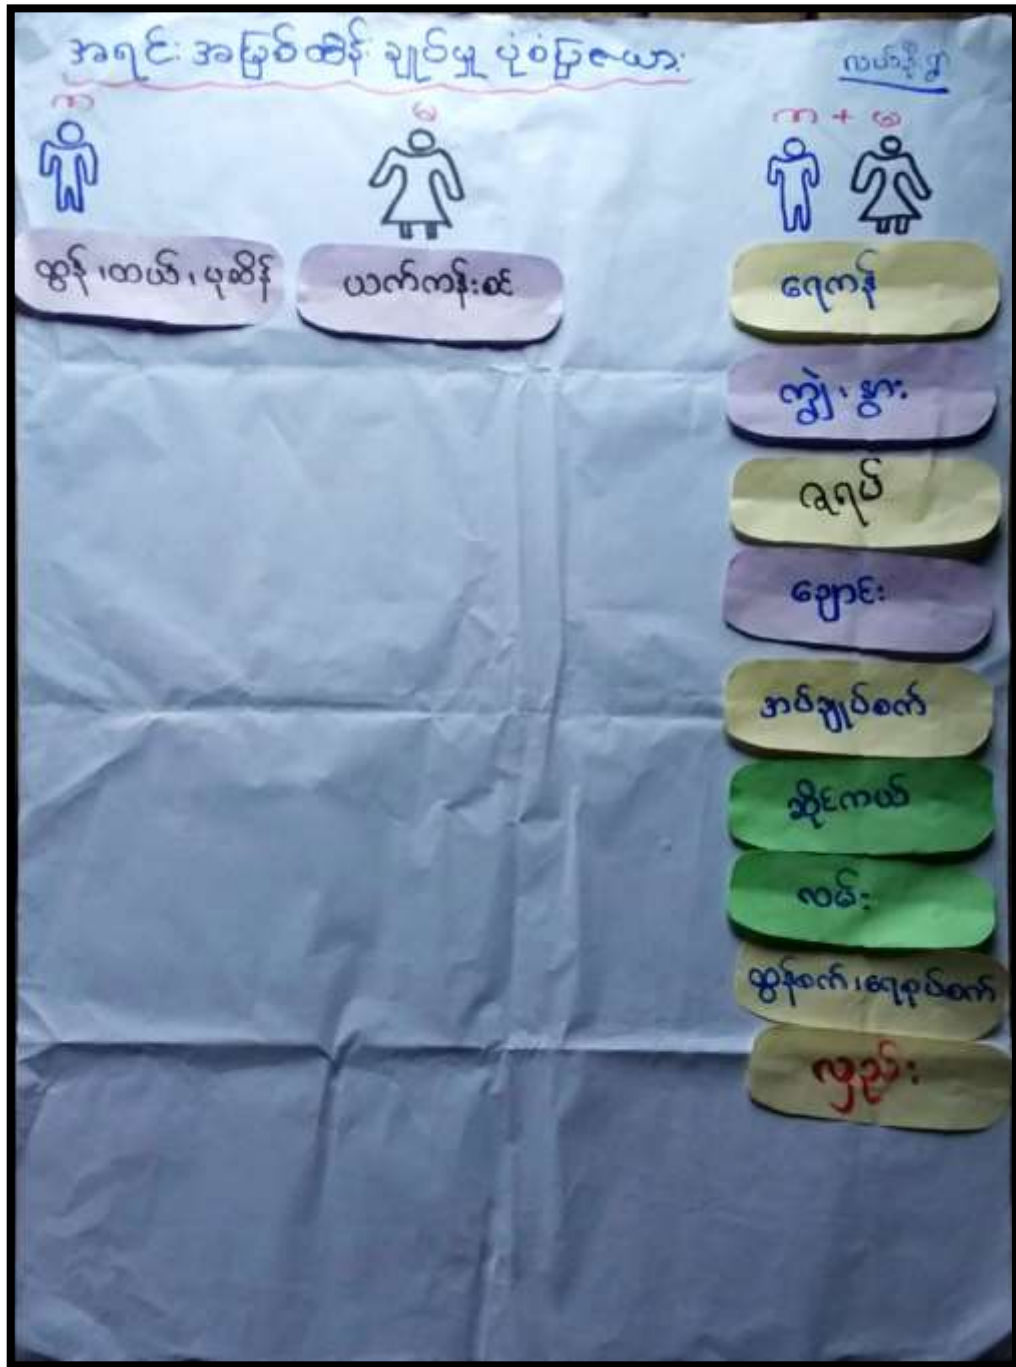 အရင်း အမြစ်ထိန်း ချုပ်မှု ပုံစံပြဇယား
လယ်နီရွာ
ကာ
မ
ကာ + မ
ထွန် ၊ တယ် ၊ ပုဆိန်
ယက်ကန်းစင်
ရေကန်
ကျွဲ ၊ နွား
ဇရပ်
ချောင်း
အပ်ချုပ်စက်
ဆိုင်ကယ်
လမ်း
ထွန်စက် ၊ ရေစုပ်စက်
လှည်း